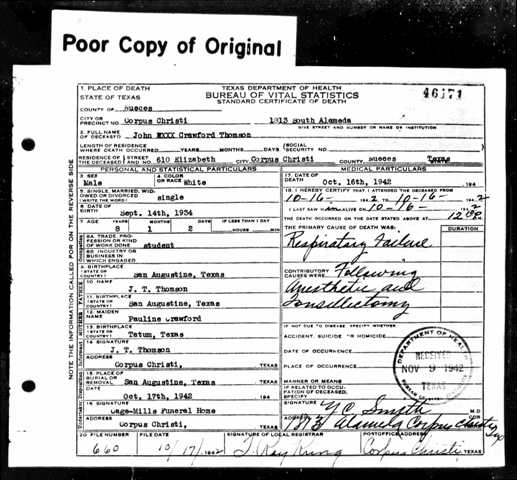 Poor Copy of Original
1. PLACE OF DEATH
STATE OF TEXAS
TEXAS DEPARTMENT OF HEALTH
BUREAU OF VITAL STATISTICS
STANDARD CERTIFICATE OF DEATH
46171
COUNTY OF Nueces
CITY OR PRECINCT NO. Corpus Christi 1813 South Alameda
GIVE STREET AND NUMBER OR NAME OR INSTITUTION
2. FULL NAME OF DECEASED John MXXX Crawford Thomson
LENGTH OF RESIDENCE WHERE DEATH OCCURRED YEARS MONTHS DAYS SOCIAL SECURITY NO.
RESIDENCE OF THE DECEASED STREET AND NO. 610 Elizabeth CITY Corpus Christi Nueces Texas
PERSONAL AND STATISTICAL PARTICULARS
MEDICAL PARTICULARS
3. SEX Male
4. COLOR OR RACE White
5. SINGLE, MARRIED, WIDOWED OR DIVORCED (WRITE THE WORD) single
6. DATE OF BIRTH Sept. 14th, 1934
7. AGE YEARS MONTHS DAYS IF LESS THAN 1 DAY
8 1 2 HOURS MIN
8A. TRADE, PROFESSION OR KIND OF WORK DONE student
8B. INDUSTRY OR BUSINESS IN WHICH ENGAGED
9. BIRTHPLACE (STATE OR COUNTRY) San Augustine, Texas
10. NAME J. T. Thomson
11. BIRTHPLACE (STATE OR COUNTRY) San Augustine, Texas
12. MAIDEN NAME Pauline Crawford
13. BIRTHPLACE (STATE OR COUNTRY) Tatum, Texas
14. SIGNATURE J. T. Thomson
ADDRESS Corpus Christi,
15. PLACE OF BURIAL OR REMOVAL San Augustine, Texas
DATE Oct, 17th, 1942
16. SIGNATURE Cage-Mills Funeral Home
ADDRESS Corpus Christi, TEXAS
17. DATE OF DEATH Oct, 16th, 1942 194
18. I HERESY CERTIFY THAT I ATTENDED THE DECEASED FROM
10-16- 194 2 TO 10-16- 194 2
I LAST SAW ALIVE ON 10-16- 194 2
THE DEATH OCCURRED ON THE DATE STATED ABOVE AT 12
THE PRIMARY CAUSE OF DEATH WAS: DURATION
Respiratory Failure
CONTRIBUTORY CAUSES WERE: Following
Anesthetic and
Tonsillectomy
IF NOT DUE TO DISEASE, SPECIFY WHETHER:
ACCIDENT, SUICIDE OR HOMICIDE
DATE OF OCCURRENCE
PLACE OF OCCURRENCE
MANNER OR MEANS
IF RELATED TO OCCUPATION OF DECEASED, SPECIFY
DEPARTMENT OF HEALTH
RECEIVED
NOV 9 1942
TEXAS
SIGNATURE Y C Smith M.D.
ADDRESS 1813 Alameda Corpus Christi Tex
20. FILE NUMBER FILE DATE SIGNATURE OF LOCAL REGISTRAR POSTOFFICE ADDRESS
660 10/17/1942 Corpus Christi TEXAS
NOTE THE INFORMATION CALLED FOR ON THE REVERSE SIDE